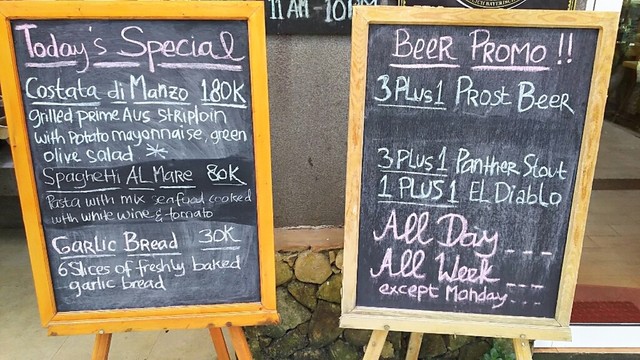 Today's Special
Costata di Manzo 180K
grilled prime Aus Striploin
with Potato mayonnaise, green
olive salad
Spaghetti AL Mare 80K
Pasta with mix seafood cooked
with white wine & tomato
Garlic Bread 30K
6 Slices of freshly baked
garlic bread
11AM - 10PM
Beer Promo !!
3 Plus 1 Prost Beer
3 Plus 1 Panther Stout
1 PLUS 1 EL Diablo
All Day ---
All Week ---
except Monday ...